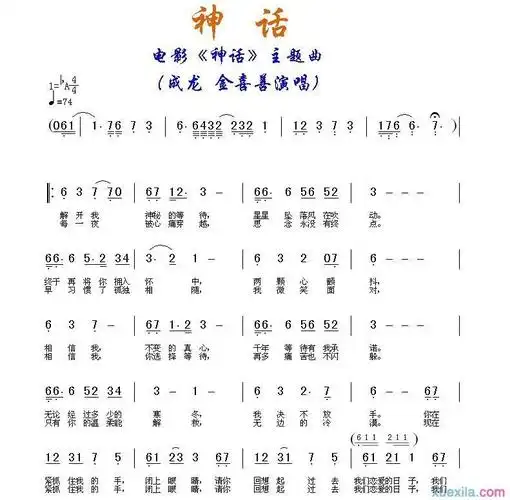 神 话
电影《神话》主题曲
（成龙 金喜善演唱）
1=♭A 4/4
♩=74
(061 | 1·76 7 3 | 6·6432 232 1 | 12 3 7 3 | 176 6 - 7· |
‖: 6 3 7 70 | 67 12· 3 - | 66· 6 56 52 | 3 - - - |
解 开 我 神秘 的 等 待， 星星 坠 落 风 在 吹 动。
每 一 夜 被心 痛 穿 越， 思 念 永 没 有 终 点。
66· 65 5·2 34 | 3 - 3 - | 66· 6 3 2 07 | 6 - - - |
终于 再 将 你 拥 入 怀 中， 两 颗 心 颤 抖，
早 习 惯 了 孤 独 相 随， 我 微 笑 面 对，
6 3 7 - | 67 1·2 3 - | 66· 6 56 52 | 3 - - - |
相 信 我， 不 变 的 真 心， 千年 等 待 有 我 承 诺。
相 信 我， 你 选 择 等 待， 再多 痛 苦 也 不 闪 躲。
66· 6 52 34 | 3 - 3 - | 66· 6 3 2 07 | 6 - - 67 |
无论 经 过 多 少 的 寒 冬， 我 决 不 放 手。 你在
只有 你 的 温 柔 能 解 救 无 边 的 冷 漠。 现在
12 23 1 76 | 61 23 3 67 | 12 3 6 5 3 | 2 1 2 67 |
紧抓 住我 的 手， 闭上 眼 睛， 请你 回想 起 过 去 我们 恋爱 的 日 子， 我们
紧抓 住我 的 手， 闭上 眼 睛， 请你 回想 起 过 去
(6 1 1 2 1 1)
xuexila.com